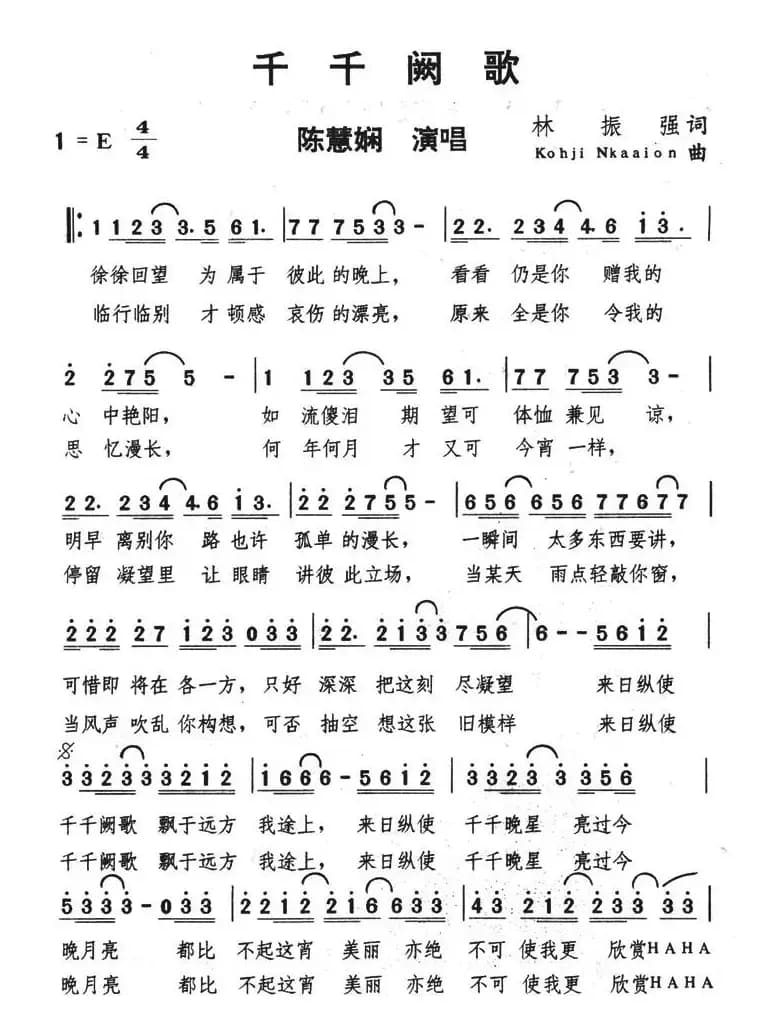 千千阙歌
1=E 4/4 陈慧娴 演唱 林振强词
Kohji Nkaaion 曲
1123 3·5 61· 777533- 22· 234 4·6 i3·
徐徐回望 为属于 彼此的晚上， 看看 仍是你 赠我的
临行临别 才顿感 哀伤的漂亮， 原来 全是你 令我的
2 275 5 - 1 123 35 61· 77 753 3-
心 中艳阳， 如 流傻泪 期望可 体恤兼见谅，
思 忆漫长， 何 年何月 才又可 今宵一样，
22· 234 4·6 i3· 22 2755- 656 656 77677
明早 离别你 路也许 孤单的漫长， 一瞬间 太多东西要讲，
停留 凝望里 让眼睛 讲彼此立场， 当某天 雨点轻敲你窗，
222 27 123 033 22· 2133 756 6--5612
可惜即将在各一方，只好 深深 把这刻 尽凝望 来日纵使
当风声吹乱你构想，可否 抽空 想这张 旧模样 来日纵使
3323 33212 1666-5612 3323 3 356
千千阙歌 飘于远方 我途上， 来日纵使 千千晚星 亮过今
千千阙歌 飘于远方 我途上， 来日纵使 千千晚星 亮过今
5333-033 2212 216633 43 212 233 33
晚月亮 都比 不起这宵 美丽亦绝 不可 使我更 欣赏HAHA
晚月亮 都比 不起这宵 美丽亦绝 不可 使我更 欣赏HAHA